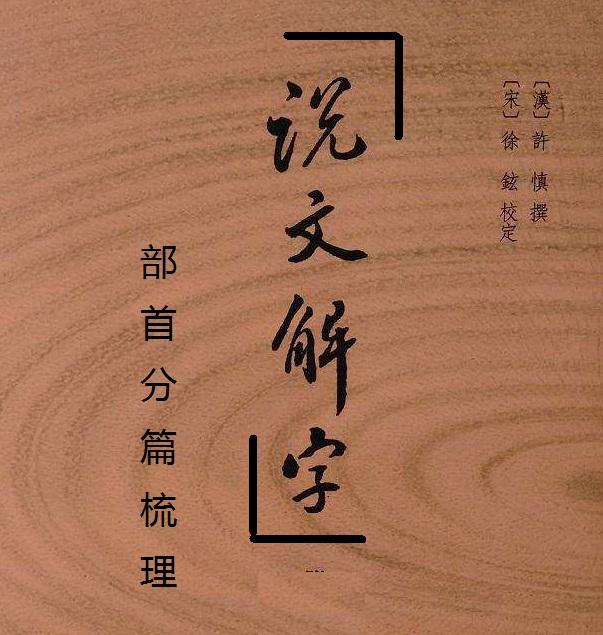 〔漢〕許慎撰
〔宋〕徐鉉校定
说文解字
部首分篇梳理